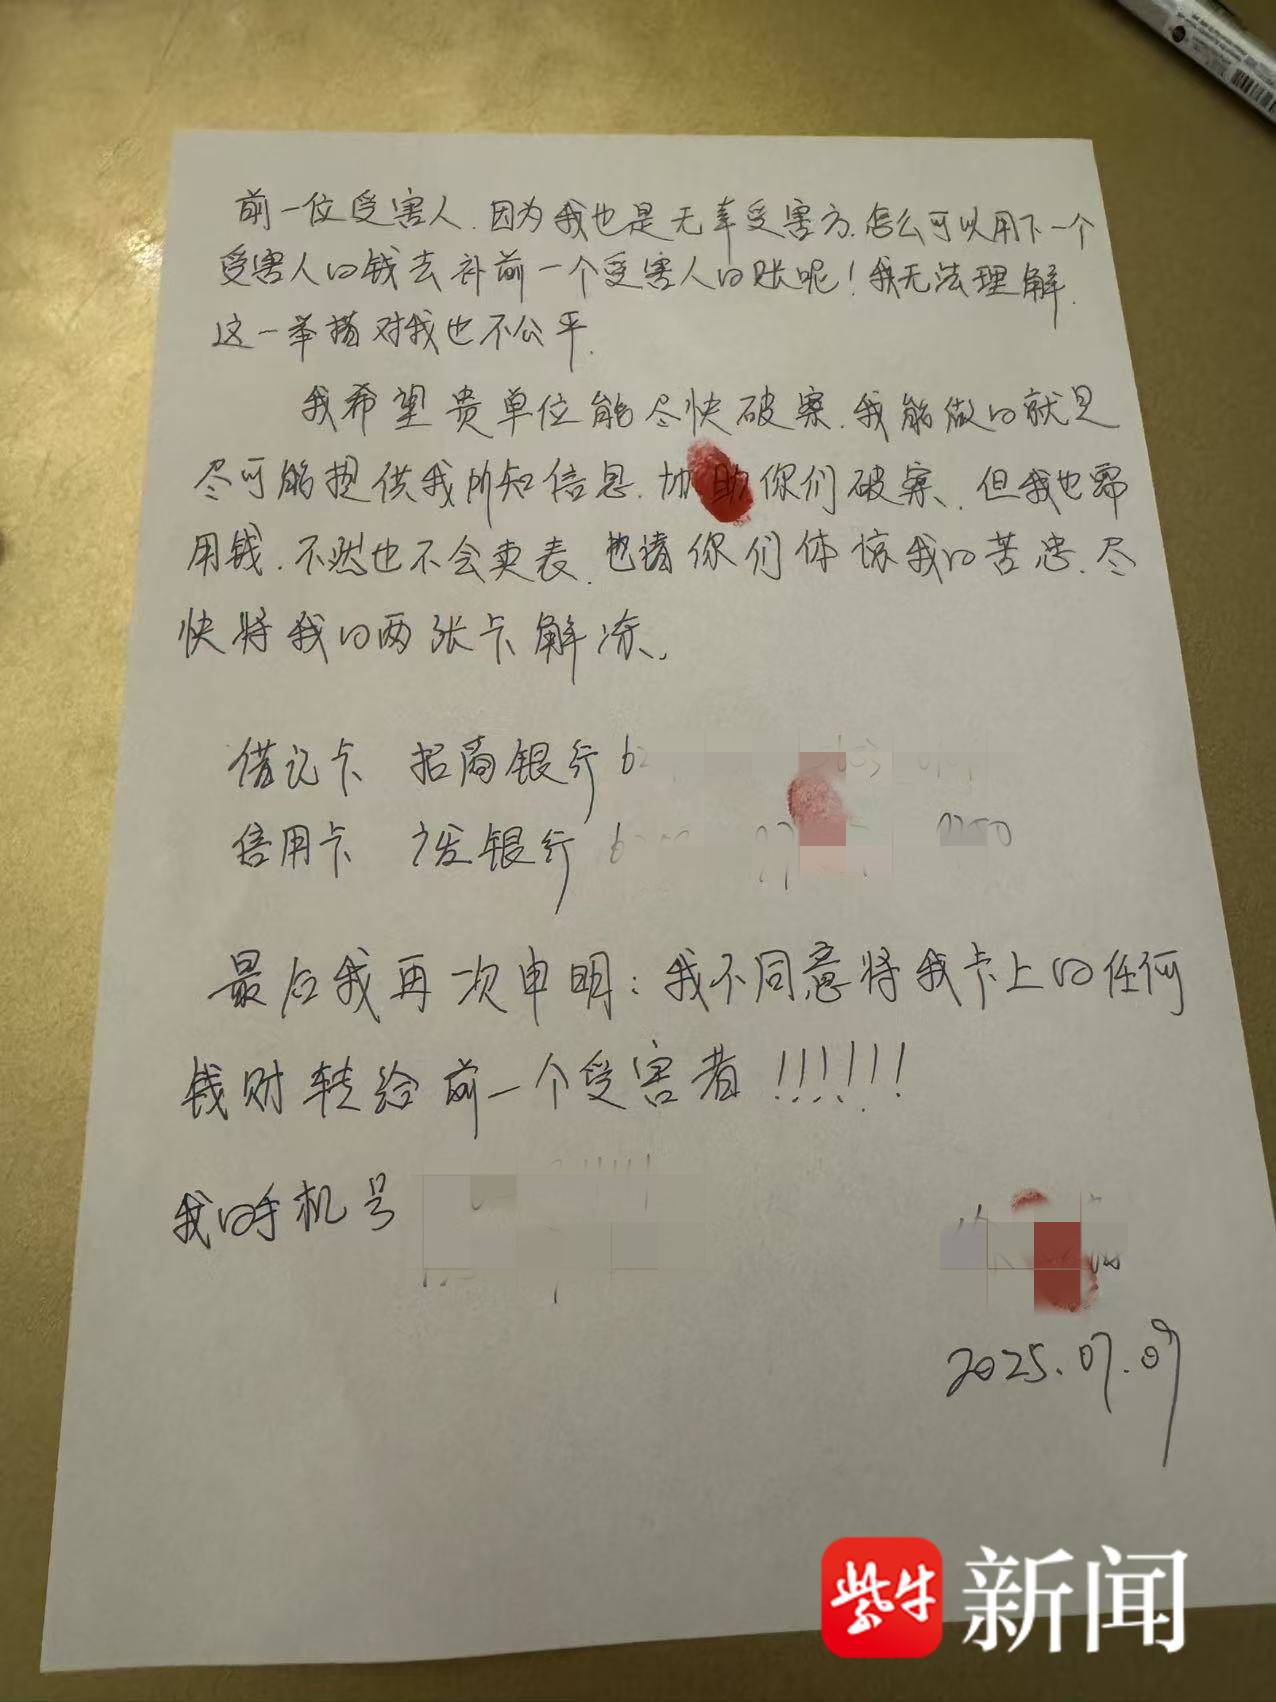 前一位受害人.因为我也是无辜受害方.怎么可以用下一个
受害人的钱去补前一个受害人的账呢!我无法理解.
这一举措对我也不公平.
我希望贵单位能尽快破案.我能做的就是
尽可能提供我所知信息.协助你们破案、但我也需
用钱.不然也不会卖表.也请你们体惊我的苦忠.尽
快将我的两张卡解冻、
借记卡 招商银行 6
信用卡 广发银行 6
最后我再次申明:我不同意将我卡上的任何
钱财转给前一个受害者!!!!!!
我的手机号
2025.07.09
紫牛
新闻